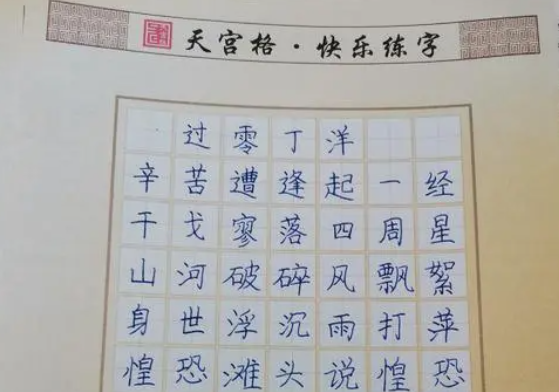 天宫格·快乐练字
过零丁洋
辛苦遭逢起一经
干戈寥落四周星
山河破碎风飘絮
身世浮沉雨打萍
惶恐滩头说惶恐